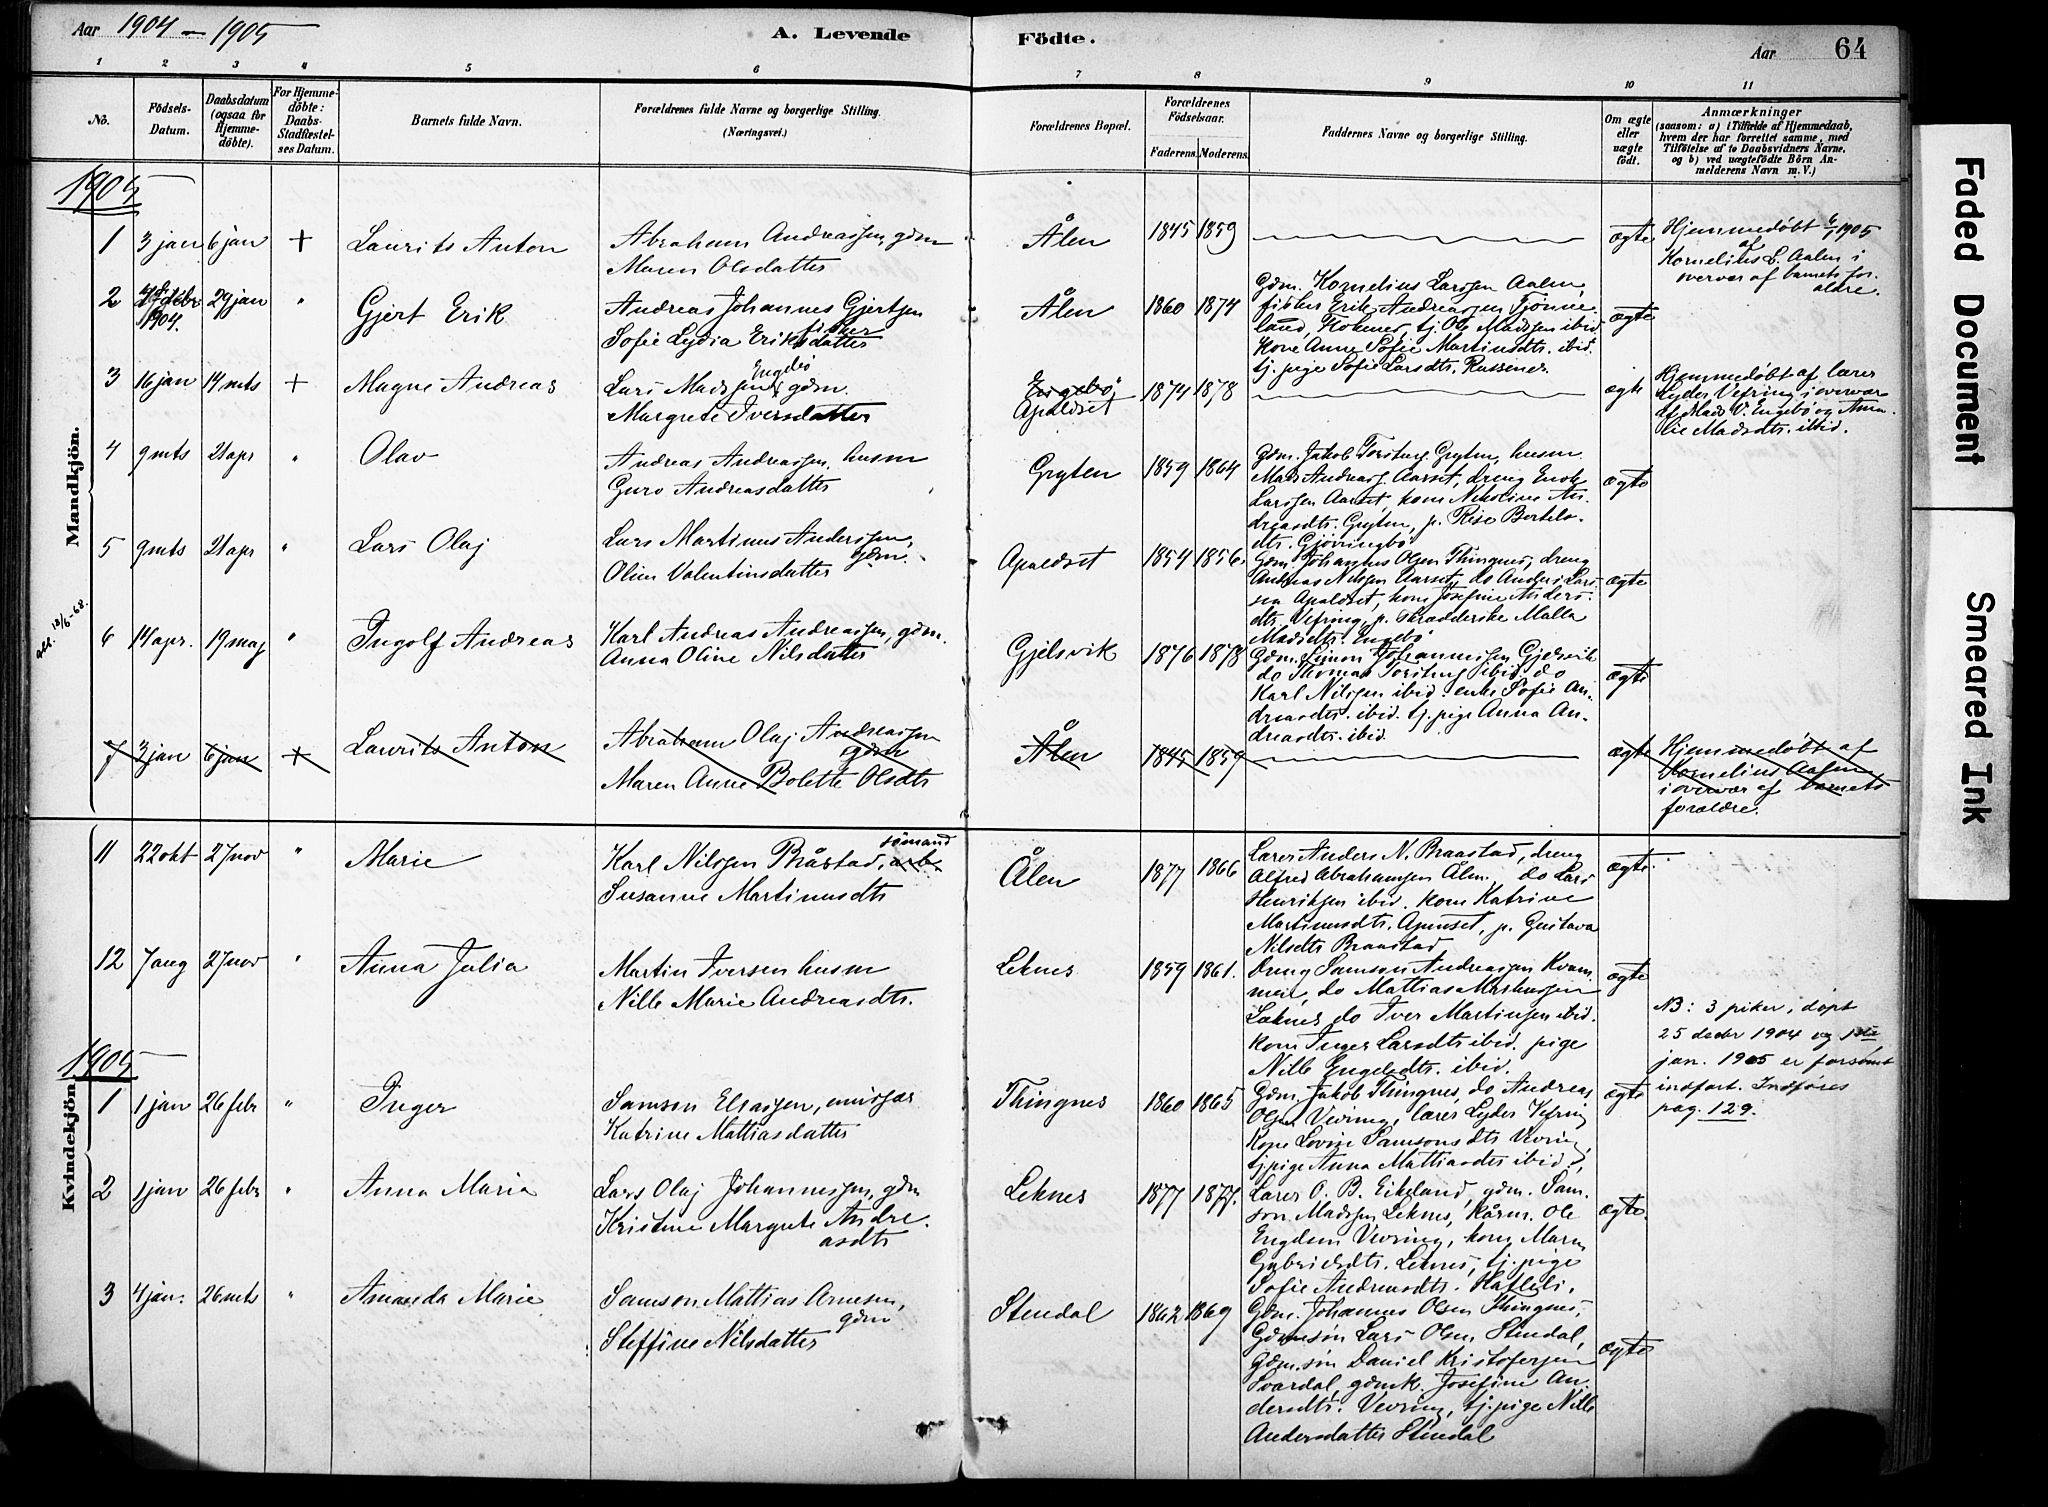 Aar 1904 – 1905
A. Levende
Födte.
Aar
64
1 2 3 4 5 6 7 8 9 10 11
No.
Födsels-
Datum.
Daabsdatum
(ogsaa for
Hjemme-
döbte).
For Hjemme-
döbte:
Daabs-
Stadfæstel-
ses Datum.
Barnets fulde Navn.
Forældrenes fulde Navne og borgerlige Stilling.
(Næringsvei.)
Forældrenes Bopæl.
Forældrenes
Födselsaar.
Faderens. Moderens.
Faddernes Navne og borgerlige Stilling.
Om ægte
eller
uægte
födt.
Anmærkninger
(saasom: a) i Tilfælde af Hjemmedaab,
hvem der har forrettet samme, med
Tilföielse af to Daabsvidners Navne,
og b) ved uægtefödte Börn An-
melderens Navn m. V.)
Mandkjön.
1905
1 3 jan 6 jan + Laurits Anton
Abraham Andreassen, gdm
Maren Olsdatter
Ålen 1845 1859
ægte
Hjemmedøbt 6/1 1905
af
Kornelius L. Aalen i
overvær af barnets for-
ældre.
2 1904. 29 jan " Gjert Erik
Andreas Johannes Gjertsen
fisker
Sofie Lydia Eriksdatter
Ålen 1860 1874
Gdm. Kornelius Larssen Aalen,
fisker Erik Andreassen Tjønne
land, Ole Madssen ibid
Kone Anne Sofie Martinsdtr. ibid.
tj. pige Sofie Larsdtr. Russenes
ægte
3 16 jan 14 mts + Magne Andreas
Engebø
Lars Madssen, gdm.
Margrete Iversdatter
Engebø,
Apaldset
1874 1878
ægte
Hjemmedøbt af lærer
Lyder Vefring i overvær
af Mads V. Engebø og Ama-
lie Madsdtr. ibid.
4 9 mts 21 apr " Olav
Andreas Andreassen, husm
Guro Andreasdatter
Gryten 1859 1864
Gdm. Jakob Torsteng. Gryten, husm.
Mads Andreass. Aarset, dreng Enok
Larssen Aarset, kone Nikoline An-
dreasdtr. Gryten, p. Rise Bertels-
dtr. Gjörringbø
ægte
5 9 mts 21 apr " Lars Olaj
Lars Martinus Anderssen,
gdm.
Oline Valentinsdatter
Apaldset 1854 1856.
Gdm. Johannes Olsen Thingnes, dreng
Andreas Nilssen Aarset, do Anders Lars-
sen Apaldset, kone Josefine Anders-
dtr. Vefring, p. skrædderske Malla
Madsdtr. Engebø
ægte
6 14 apr. 19 maj " Ingolf Andreas
Karl Andreas Andreassen, gdm.
Anna Oline Nilsdatter
Gjelsvik 1876 1878
Gdm. Simon Johannessen Gjelsvik
do Thomas Torsteng ibid. do
Karl Nilssen ibid. enke Sofie An-
dreasdtr. ibid. tj. pige Anna An-
dreasdtr. ibid.
ægte
7 3 jan 6 jan + Laurits Anton
Abraham Olaj Andreassen
gdm
Maren Anne Bolette Olsdtr
Ålen 1845 1859
ægte
Hjemmedøbt af
Kornelius Aalen
i overvær af barnets
forældre.
Kvindekjön.
11 22 okt 27 nov " Marie
sømand
Karl Nilssen Bråstad, arb.
Susanne Martinusdtr
Ålen 1877 1866
Lærer Anders N. Braastad, dreng
Alfred Abrahamsen Ålen. do Lars
Henriksen ibid. Kone Katrine
Martinusdtr. Apenset, p. Gustava
Nilsdtr Braastad
ægte
12 7 aug 27 nov " Anna Julia
Martin Iversen husm
Nille Marie Andreasdtr.
Leknes 1859 1861.
Dreng Samson Andreassen Kvam
mei, do Mattias Markussen
Leknes do Iver Martinsen ibid.
kone Inger Larsdtr ibid. pige
Nille Engelsdtr. ibid.
ægte
NB: 3 piker, døpt
25 decbr 1904 og 1ste
jan. 1905 er forsømt
indført. Indføres
pag. 129.
1905
1 1 jan 26 febr " Inger
Samson Eliassen, emissær
Katrine Mattiasdatter
Thingnes 1860 1865
Gdm. Jakob Thingnes, do Andreas
Olsen Vevring, lærer Lyder Vefring
Kone Lovise Samsonsdtr Vevring,
tj. pige Anna Mattiasdtr ibid.
ægte
2 1 jan 26 febr " Anna Maria
Lars Olaj Johannessen, gdm
Kristine Margrete Andre-
asdtr
Leknes 1877 1877.
Lærer O. B. Eikeland, gdm. Sam-
son Madssen Leknes, kårm. Ole
Engelsen Vevring, kone Maren
Gabrielsdtr. Leknes, tj. pige
Sofie Andreasdtr. Hatleli.
ægte.
3 4 jan. 26 mts " Amanda Marie
Samson Mattias Arnesen,
gdm
Steffine Nilsdatter
Stendal 1862 1869
Gdm. Johannes Olsen Thingnes,
Gdmsøn Lars Olsen Stendal,
gdm.søn Daniel Kristofersen
Svardal, gdmk. Josefine An-
dersdtr. Vevring, tj. pige Nille
Andersdatter Stendal
ægte
Faded Document
Smeared Ink